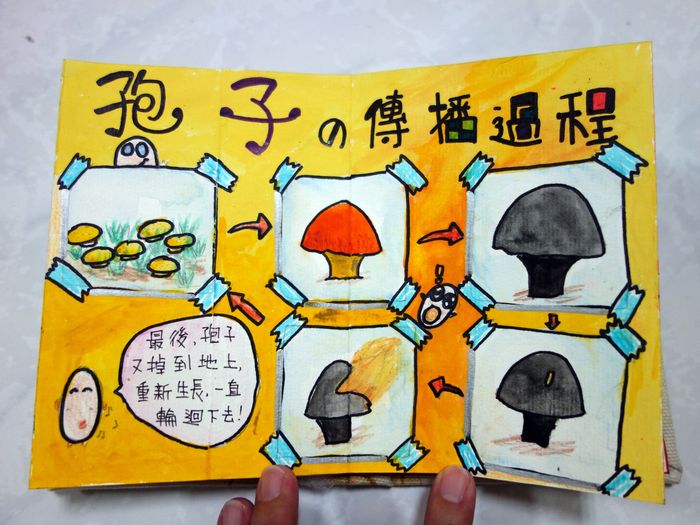 孢子の傳播過程
最後,孢子
又掉到地上,
重新生長,一直
輪迴下去!